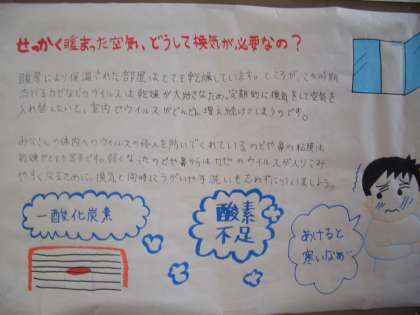 せっかく暖まった空気、どうして換気が必要なの？
暖房により保温された部屋はとても乾燥しています。ところが、この時期
流行るカゼなどのウイルスは乾燥が大好きなため、定期的に換気をして空気を
入れ替えしないと、室内でウイルスがどんどん増え続けてしまうのです。
みなさんの体内へのウイルスの侵入を防いでくれているのどや鼻の粘膜は
乾燥がとても苦手です。弱くなったのどや鼻からはカゼのウイルスが入りこみ
やすくなるために、換気と同時にうがいや手洗いも忘れずに行いましょう。
一酸化炭素
酸素
不足
あけると
寒いなぁ…